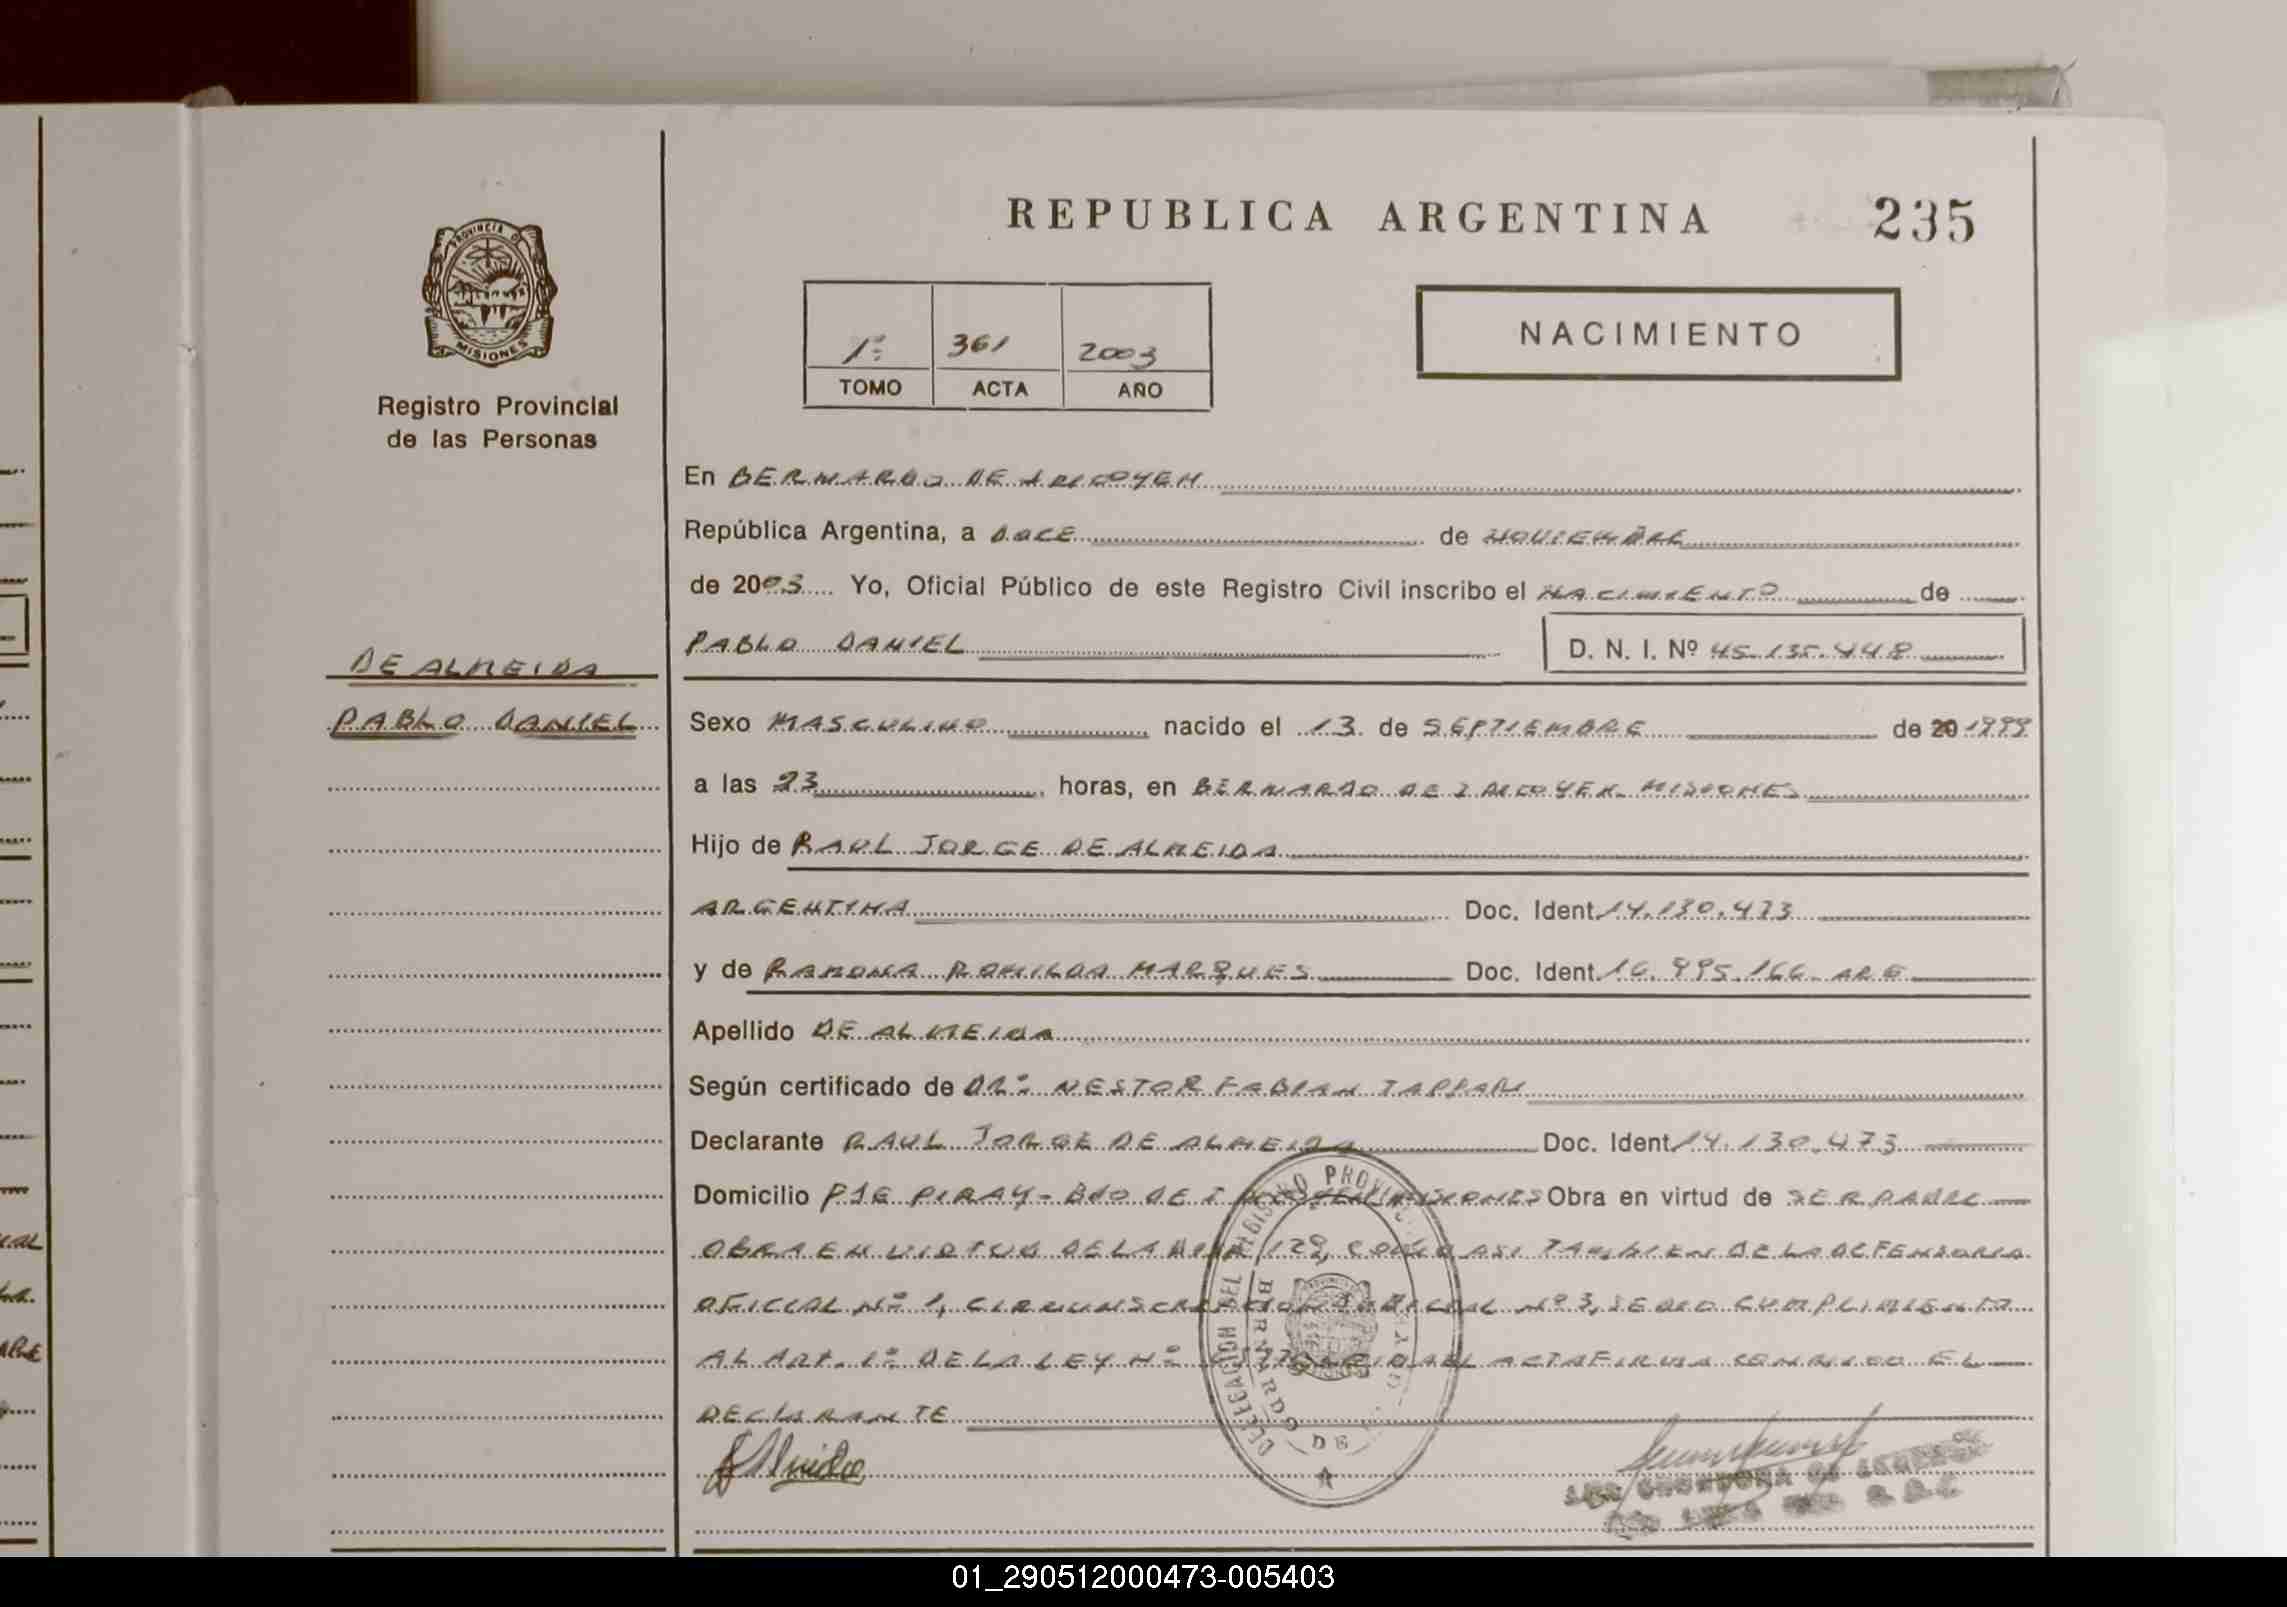 REPUBLICA ARGENTINA 235
PROVINCIA DE
MISIONES
Registro Provincial
de las Personas
1º 361 2003
TOMO ACTA AÑO
NACIMIENTO
En BERNARDO DE IRIGOYEN
República Argentina, a DOCE de NOVIEMBRE
de 2003 Yo, Oficial Público de este Registro Civil inscribo el NACIMIENTO de
PABLO DANIEL D. N. I. Nº 45.135.448
DE ALMEIDA
PABLO DANIEL
Sexo MASCULINO nacido el 13 de SEPTIEMBRE de 20 1999
a las 23 horas, en BERNARDO DE IRIGOYEN MISIONES
Hijo de RAUL JORGE DE ALMEIDA
ARGENTINA Doc. Ident 14.130.473
y de RAMONA ROMILDA MARQUES Doc. Ident 16.995.166 ARG
Apellido DE ALMEIDA
Según certificado de DR: NESTOR FABIAN TAPPARI
Declarante RAUL JORGE DE ALMEIDA Doc. Ident 14.130.473
Domicilio PJE PIRAY - BDO DE MISIONES Obra en virtud de SER PADRE
OBRA EN VIRTUD DE LA COMO ASI TAMBIEN DE LA DEFENSORIA
OFICIAL Nº 1, CIRCUNSCRIPCION JUDICIAL Nº 3, SE DIO CUMPLIMIENTO
AL ART. 1º DE LA LEY Nº ACTA FIRMA CONMIGO EL
DECLARANTE
DELEGACION DEL REGISTRO PROVINC
BERNARDO DE
01_290512000473-005403